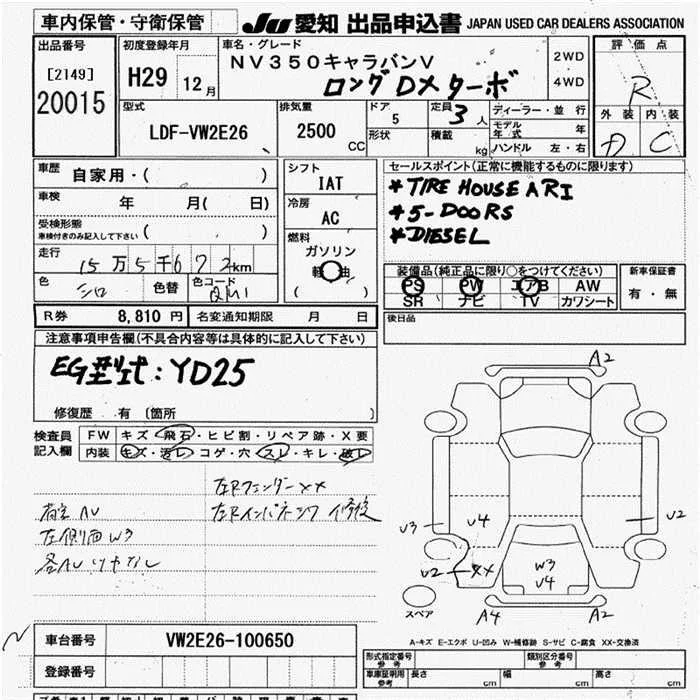 車内保管・守衛保管
JU 愛知 出品申込書 JAPAN USED CAR DEALERS ASSOCIATION
出品番号
[2149]
20015
初度登録年月
H29 12月
車名・グレード
NV350キャラバンV
ロング DX ターボ
2WD
4WD
評価点
R
外装 内装
D C
型式
LDF-VW2E26
排気量
2500 CC
ドア
5
形状
定員
3人
積載
kg
ディーラー・並行
モデル年式 年
ハンドル 左・右
車歴 自家用・( )
車検 年 月( 日)
受検形態
車検付きのみ記入して下さい ( )
走行 15万5千673km
色 シロ 色替 色コード QM1
シフト
IAT
冷房
AC
燃料
ガソリン
軽油
( )
セールスポイント(正常に機能するものに限ります)
*TIRE HOUSE ARI
*5-DOORS
*DIESEL
装備品(純正品に限り○をつけてください)
PS PW エアB AW
SR ナビ TV カワシート
新車保証書
有・無
R券 8,810 円 名変通知期限 月 日
後日品
注意事項申告欄(不具合内容等は具体的に記入して下さい)
EG型式:YD25
修復歴 有 〔箇所 〕
検査員
記入欄
FW キズ・飛石・ヒビ割・リペア跡・X要
内装 キズ・汚レ・コゲ・穴・スレ・キレ・破レ
左Rフェンダーxx
左Rインパネ 修後
AV
左側面W3
各AU
A2
U3
U4
U2
U2
XX
W3
U4
A4
A2
スペア
A-キズ E-エクボ U-凹み W-補修跡 S-サビ C-腐食 XX-交換済
車台番号 VW2E26-100650
登録番号
形式指定番号
参考
類別区分番号
参考
車庫証明用
参考
長さ cm 幅 cm 高さ cm